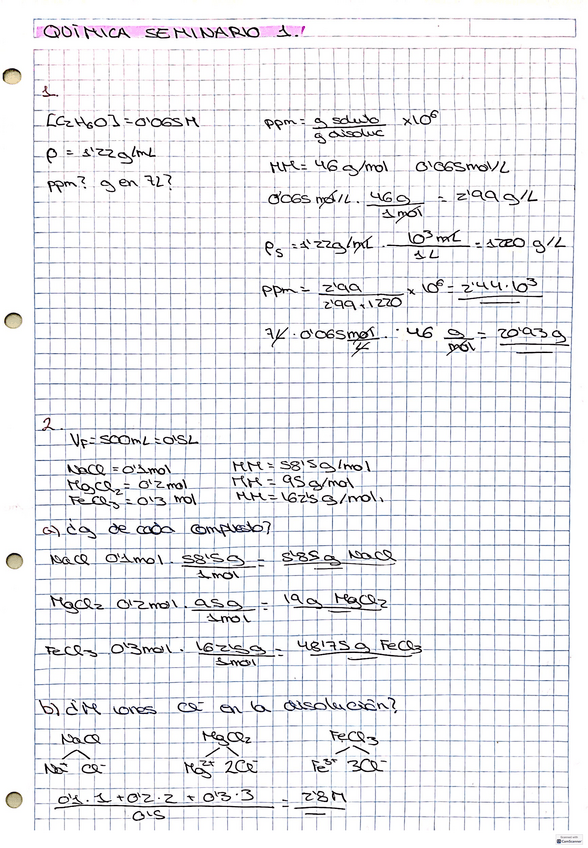 QUÍMICA SEMINARIO 1.
1.
[C2H6O] = 0'065M
ρ = 1'22g/mL
ppm? g en 7L?
ppm = g soluto / g disoluc × 10⁶
MM = 46 g/mol 0'065mol/L
0'065 mol/L · 46g / 1mol = 2'99 g/L
ρs = 1'22g/mL · 10³ mL / 1L = 1220 g/L
ppm = 2'99 / 2'99+1220 × 10⁶ = 2'44·10³
7L · 0'065 mol/L · 46 g/mol = 20'93 g
2.
VF = 500mL = 0'5L
NaCl = 0'1mol MM = 58'5g/mol
MgCl2 = 0'2mol MM = 95g/mol
FeCl3 = 0'3 mol MM = 162'5g/mol.
a) ¿g de cada compuesto?
NaCl 0'1mol · 58'5g / 1mol = 5'85g NaCl
MgCl2 0'2mol · 95g / 1mol = 19g MgCl2
FeCl3 0'3mol · 162'5g / 1mol = 48'75g FeCl3
b) ¿M iones Cl⁻ en la disolución?
NaCl MgCl2 FeCl3
Na⁺ Cl⁻ Mg²⁺ 2Cl⁻ Fe³⁺ 3Cl⁻
0'1·1 + 0'2·2 + 0'3·3 / 0'5 = 2'8M
CamScanner